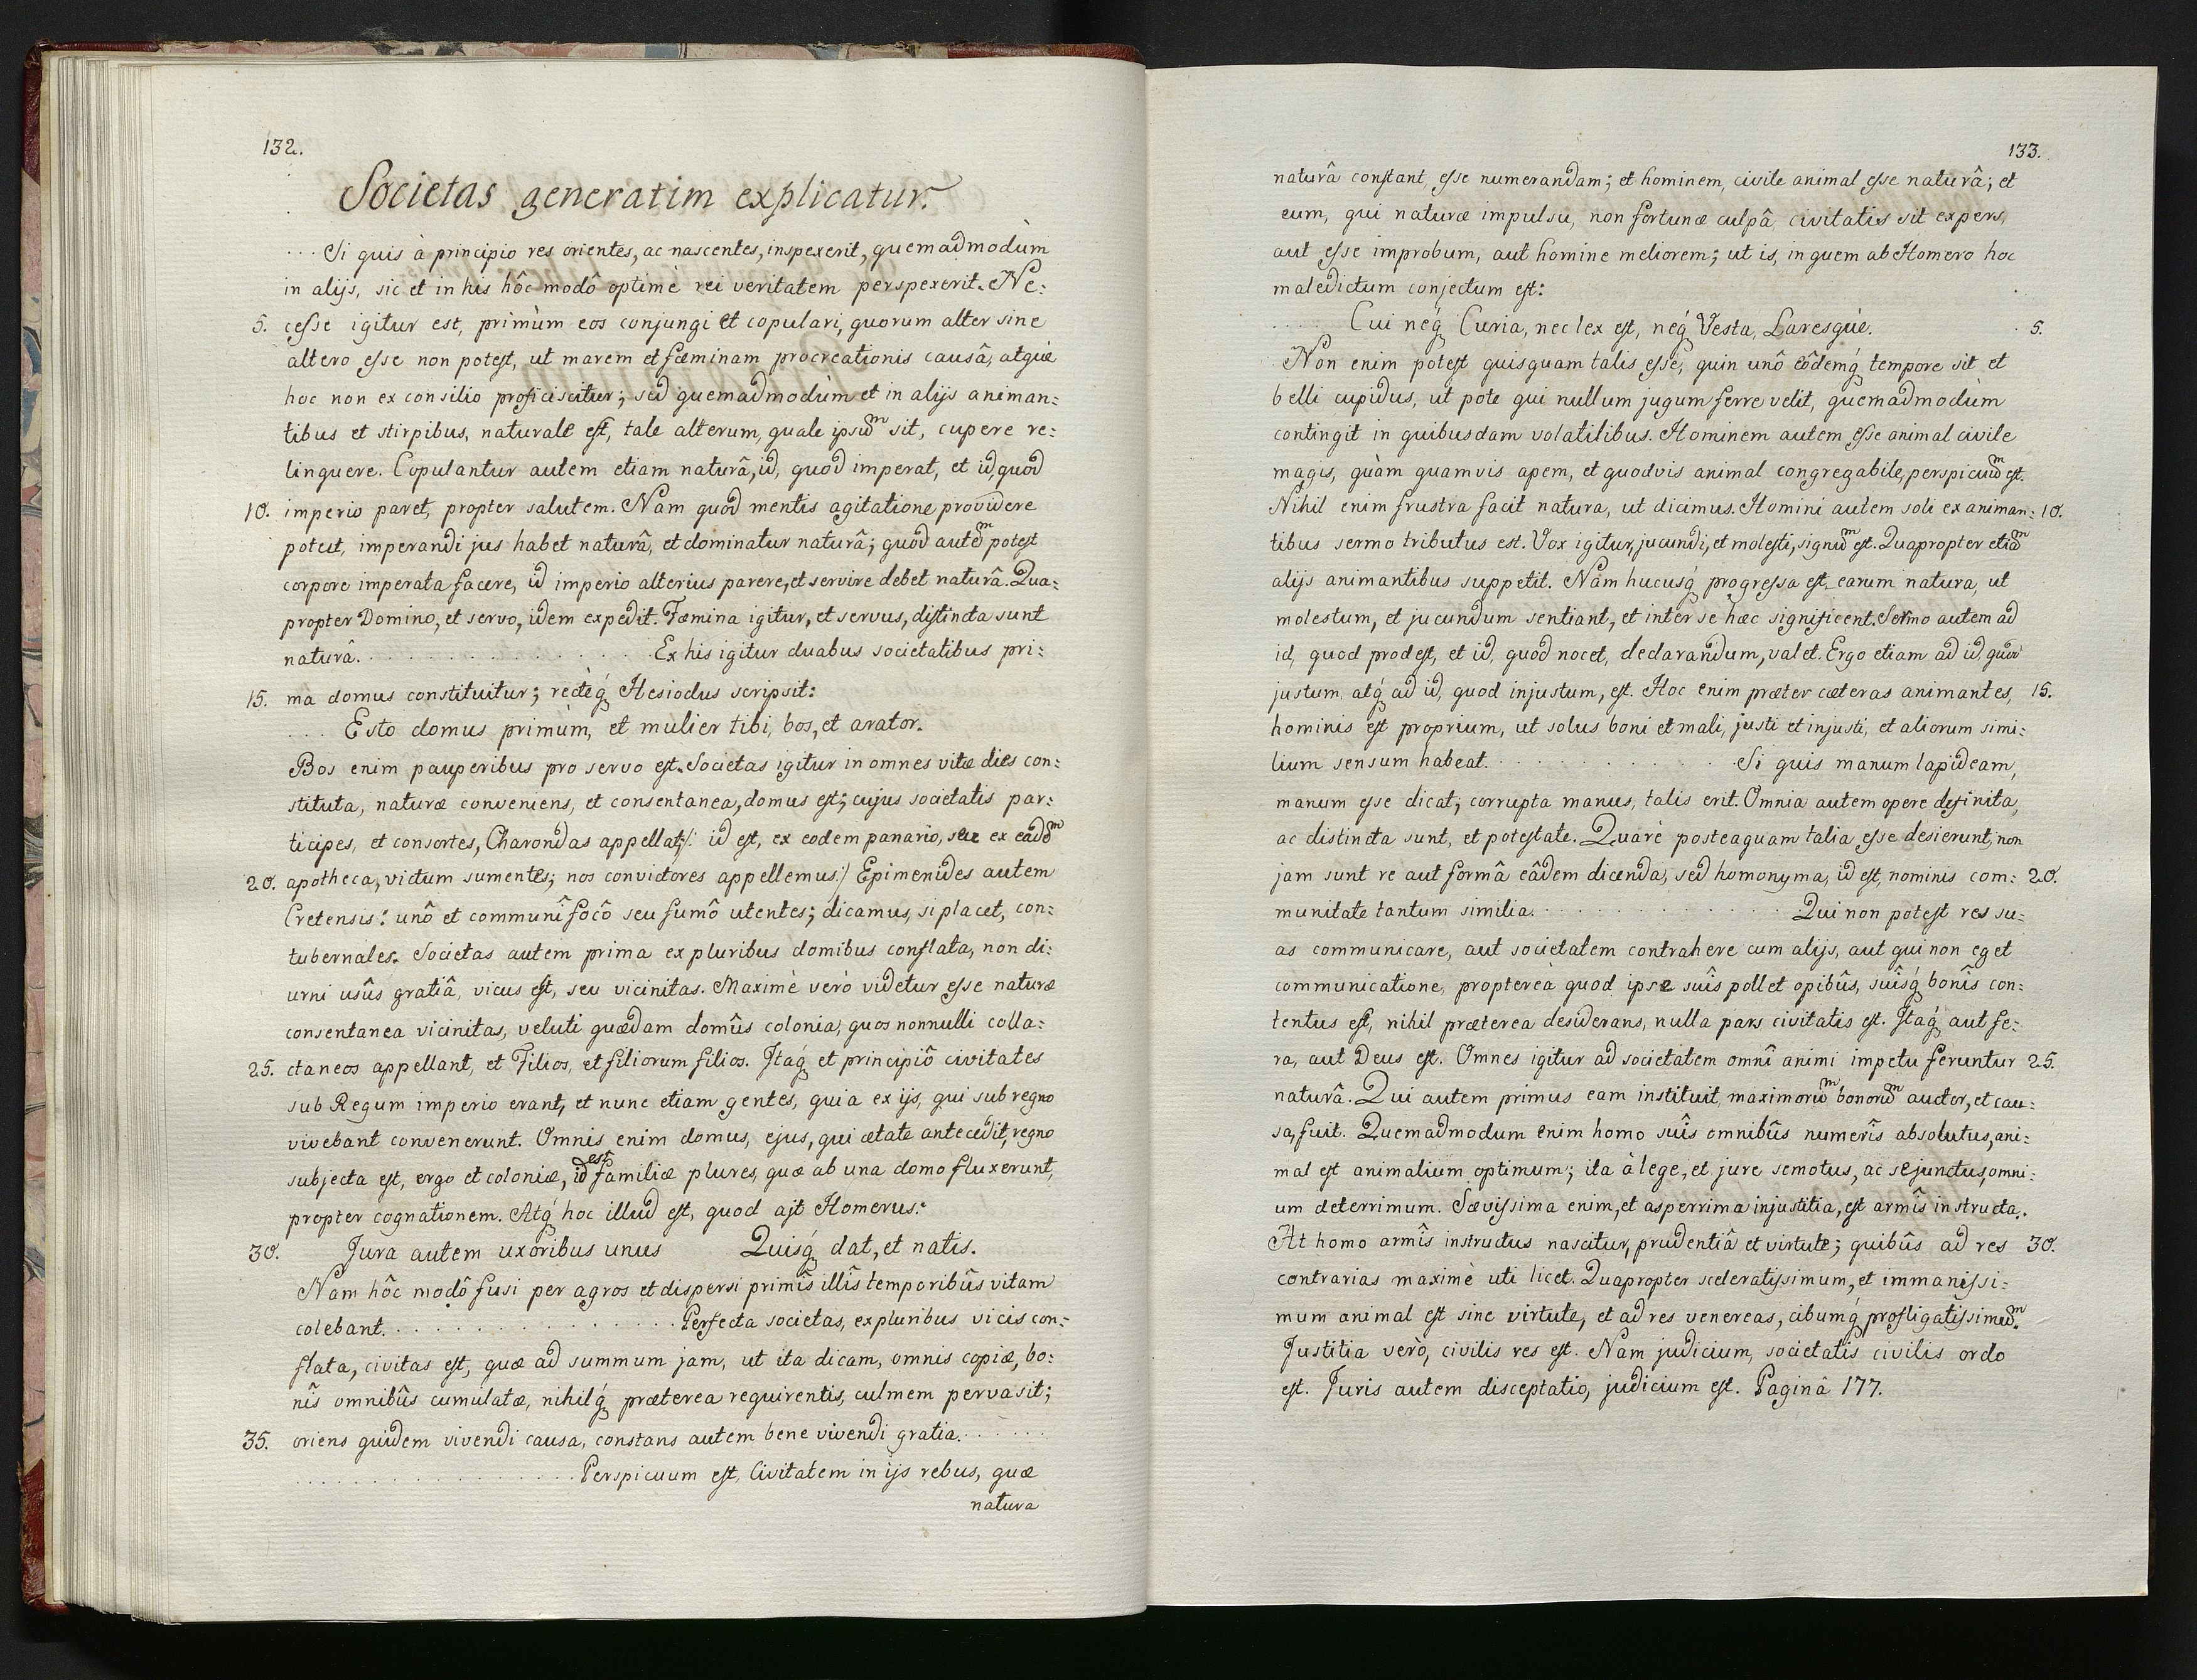 132.
Societas generatim explicatur.
... Si quis à principio res orientes, ac nascentes, inspexerit, quemadmodùm
in alijs, sic et in his hôc modô optimè rei veritatem perspexerit. Ne:
5. cesse igitur est, primùm eos conjungi et copulari, quorum alter sine
altero esse non potest, ut marem et fœminam procreationis causâ, atquè
hoc non ex consilio proficiscitur; sed quemadmodùm et in alijs animan:
tibus et stirpibus, naturale est, tale alterum, quale ipsuᵐ sit, cupere re:
linquere. Copulantur autem etiam naturâ, id, quod imperat, et id, quod
10. imperio paret, propter salutem. Nam quod mentis agitatione providere
potest, imperandi jus habet naturâ, et dominatur naturâ; quod auteᵐ potest
corpore imperata facere, id imperio alterius parere, et servire debet naturâ. Qua:
propter Domino, et servo, idem expedit. Fœmina igitur, et servus, distincta sunt
naturâ. . . . . . . . . . . . . . . . Ex his igitur duabus societatibus pri:
15. ma domus constituitur; rectéq́ Hesiodus scripsit:
. . . Esto domus primùm, et mulier tibi, bos, et arator.
Bos enim pauperibus pro servo est. Societas igitur in omnes vitæ dies con:
stituta, naturæ conveniens, et consentanea, domus est; cujus societatis par:
ticipes, et consortes, Charondas appellat;/: id est, ex eodem panario, seu ex eadeᵐ
20. apotheca, victum sumentes; nos convictores appellemus:/ Epimenides autem
Cretensis: unô et communî focô seu fumô utentes; dicamus, si placet, con:
tubernales. Societas autem prima ex pluribus domibus conflata, non di:
urni usûs gratiâ, vicus est, seu vicinitas. Maximè verò videtur esse naturæ
consentanea vicinitas, veluti quædam domûs colonia; quos nonnulli colla:
25. ctaneos appellant, et Filios, et filiorum filios. Itaq́ et principiô civitates
sub Regum imperio erant, et nunc etiam gentes, quia ex ijs, qui sub regno
vivebant convenerunt. Omnis enim domus, ejus, qui ætate antecedit, regno
subjecta est, ergo et coloniæ, id est familiæ plures, quæ ab una domo fluxerunt,
propter cognationem. Atq́ hoc illud est, quod ajt Homerus:
30. Jura autem uxoribus unus Quisq́ dat, et natis.
Nam hôc modô fusi per agros et dispersi primîs illîs temporibûs vitam
colebant. . . . . . . . . . . . . . . . Perfecta societas, ex pluribus vicis con:
flata, civitas est, quæ ad summum jam, ut ita dicam, omnis copiæ, bo:
nîs omnibûs cumulatæ, nihilq́ præterea requirentis, culmem pervasit;
35. oriens quidem vivendi causa, constans autem bene vivendi gratia. . . . . . .
. . . . . . . . . . . . . . . . Perspicuum est, Civitatem in ijs rebus, quæ
natura
133.
naturâ constant, esse numerandam; et hominem, civile animal esse naturâ; et
eum, qui naturæ impulsu, non fortunæ culpâ, civitatis sit expers,
aut esse improbum, aut homine meliorem; ut is, in quem ab Homero hoc
maledictum conjectum est:
Cui neq́ Curia, nec lex est, neq́ Vesta, Laresquè. 5.
Non enim potest quisquam talis esse, quin unô eôdemq́ tempore sit et
belli cupidus, ut pote qui nullum jugum ferre velit, quemadmodùm
contingit in quibusdam volatilibus. Hominem autem esse animal civile
magis, quàm quamvis apem, et quodvis animal congregabile, perspicuuᵐ est.
Nihil enim frustra facit natura, ut dicimus. Homini autem soli ex animan: 10.
tibus sermo tributus est. Vox igitur, jucundi, et molesti, signuᵐ est. Quapropter etiaᵐ
alijs animantibus suppetit. Nam hucusq́ progressa est earum natura, ut
molestum, et jucundum sentiant, et inter se hæc significent. Sermo autem ad
id, quod prodest, et id, quod nocet, declarandum, valet. Ergo etiam ad id, quod
justum, atq́ ad id, quod injustum, est. Hoc enim præter cæteras animantes, 15.
hominis est proprium, ut solus boni et mali, justi et injusti, et aliorum simi:
lium sensum habeat. . . . . . . . . . . . . Si quis manum lapideam,
manum esse dicat; corrupta manus, talis erit. Omnia autem opere definita,
ac distincta sunt, et potestate. Quarè posteaquam talia esse desierunt, non
jam sunt re aut formâ eâdem dicenda, sed homonyma, id est, nominis com: 20.
munitate tantum similia. . . . . . . . . . . . . Qui non potest res su:
as communicare, aut societatem contrahere cum alijs, aut qui non eget
communicatione, proptereà quod ipse suîs pollet opibûs, suîsq́ bonîs con:
tentus est, nihil præterea desiderans, nulla pars civitatis est. Itaq́ aut fe:
ra, aut Deus est. Omnes igitur ad societatem omnî animi impetu feruntur 25.
naturâ. Qui autem primus eam instituit, maximoruᵐ bonoruᵐ auctor, et cau:
sa, fuit. Quemadmodum enim homo suîs omnibûs numerîs absolutus, ani:
mal est animalium optimum; ita à lege, et jure semotus, ac sejunctus, omni:
um deterrimum. Sævissima enim, et asperrima injustitia, est armîs instructa.
At homo armîs instructus nascitur, prudentiâ et virtute; quibûs ad res 30.
contrarias maximè uti licet. Quapropter sceleratissimum, et immanissi:
mum animal est sine virtute, et ad res venereas, cibumq́ profligatissimuᵐ.
Justitia verò, civilis res est. Nam judicium, societatis civilis ordo
est. Juris autem disceptatio, judicium est. Paginâ 177.